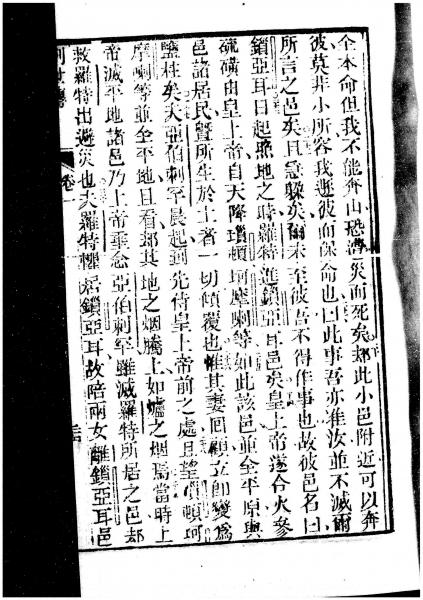 全本命但我不能奔山恐遭災而死矣却此小邑附近可以奔
彼莫非小所容我遯彼而保命也曰此事吾亦准汝並不滅爾
所言之邑矣且急躲矣爾未至彼吾不得作事也故彼邑名曰
鎖亞耳日起照地之時羅特進鎖亞耳邑矣皇上帝遂合火參
硫磺由皇上帝自天降瑣頓坷摩喇等如此該邑並全平原與
邑諸居民曁所生於土者一切傾覆也惟其妻回顧立即變爲
鹽柱矣夫亞伯剌罕晨起到先侍皇上帝前之處且望瑣頓坷
摩喇等並全平地且看却其地之烟騰上如爐之烟焉當時上
帝滅平地諸邑乃上帝垂念亞伯剌罕雖滅羅特所居之邑却
救羅特出避災也夫羅特懼居鎖亞耳故陪兩女離鎖亞耳邑
卷一